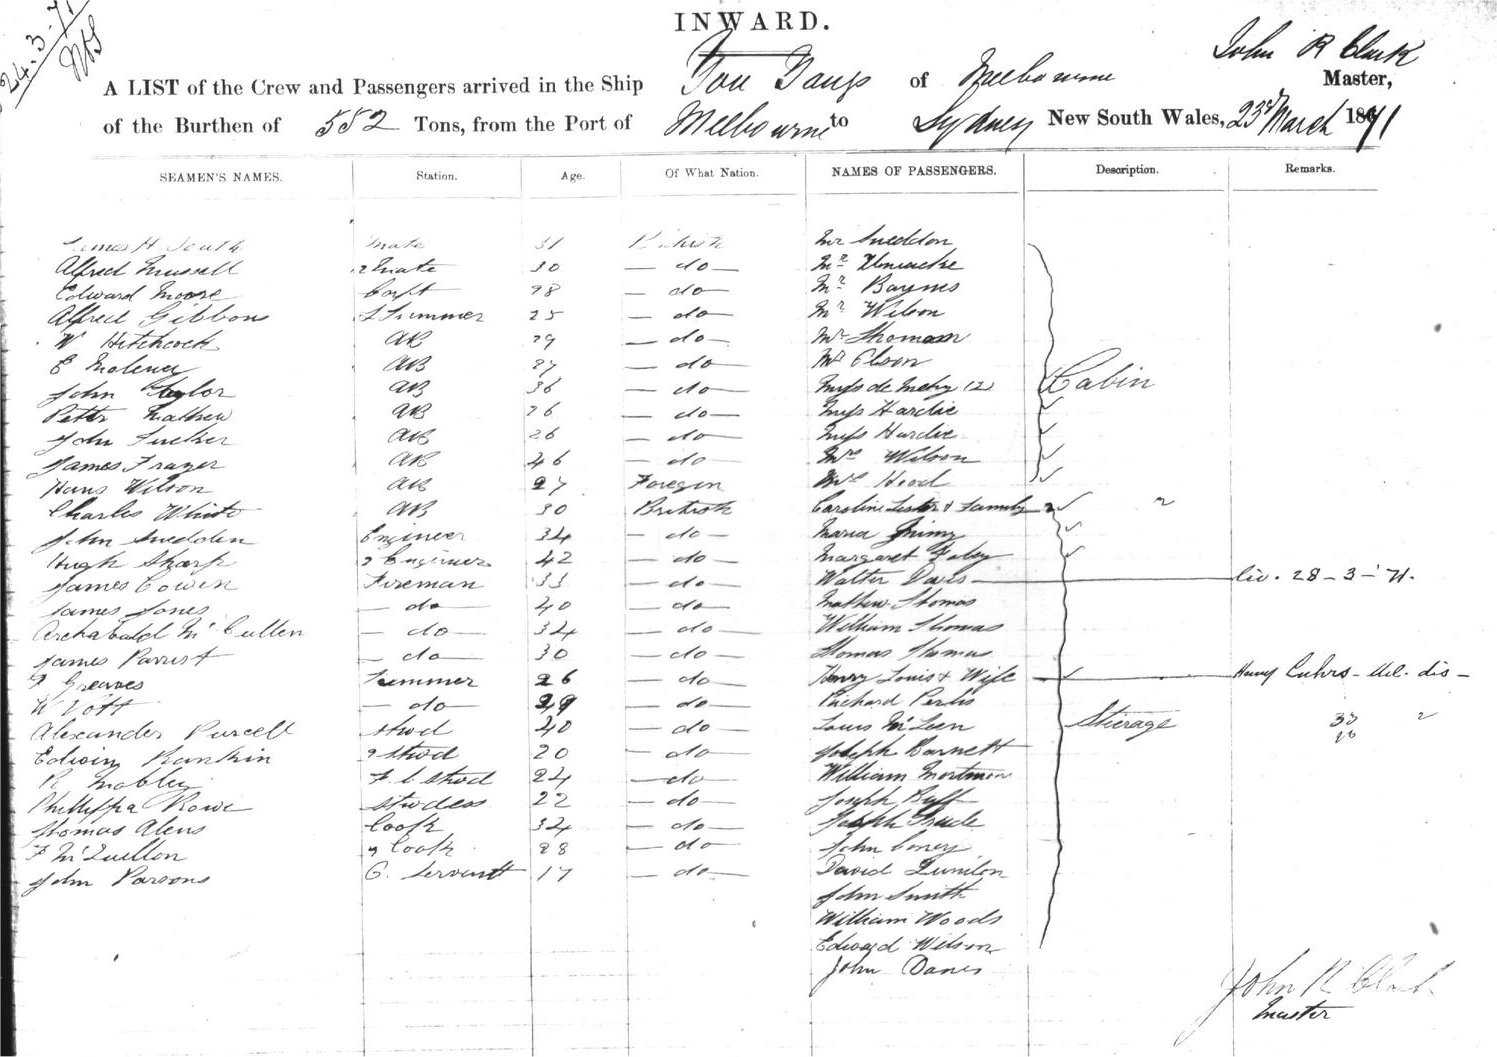 24.3.71
INWARD.
John R Clark
A LIST of the Crew and Passengers arrived in the Ship You Yangs of Melbourne Master,
of the Burthen of 552 Tons, from the Port of Melbourne to Sydney New South Wales, 23rd March 1871
SEAMEN'S NAMES. Station. Age. Of What Nation. NAMES OF PASSENGERS. Description. Remarks.
James H South Mate 31 British Mr Sneddon
Alfred Mussell 2 Mate 30 — do — Mr
Edward Moore Carpt 28 — do — Mr Bayms
Alfred Gibbons L Trimmer 25 — do — Mr Wilson
W Hitchcock AB 29 — do — Mr Thomson
E AB 27 — do — Mr Olson
John Taylor AB 36 — do — Miss de (2) Cabin
Peter Mathew AB 26 — do — Miss Hardie
John Tucker AB 26 — do — Miss Hardie
James Frazer AB 46 — do — Mrs Wilson
Hans Wilson AB 27 Foregin Mrs Hood
Charles White AB 30 British Caroline Lister & Family 2 2
John Snedden Engineer 34 — do — Maria
Hugh Sharp 2 Engineer 42 — do — Margaret Foley
James Cowin Fireman 33 — do — Walter Davis liv. 28-3-71.
James Jones — do — 40 — do — Mathew Thomas
Archabald McCullen — do — 34 — do — William Thomas
James Parrist — do — 30 — do — Thomas Thomas
F Greaves Trimmer 26 — do — Henry Louis & Wife Henry Luhrs - del. dis -
W Vott — do — 29 — do — Richard Perkis
Alexander Purcell Stwd 40 — do — Louis McLeen Steerage
Edwin Rankin 2 Stwd 20 — do — Joseph Barnett
R Mobley F C Stwd 24 — do — William Mortimor
Phillyppa Rowe Stwdess 22 — do — Joseph Ruff
Thomas Alens Cook 34 — do — Joseph
F McQuellon 2 Cook 28 — do — John Coney
John Parsons G. Servant 17 — do — David
John Smith
William Woods
Edward Wilson
John Danes
John R Clark
Master